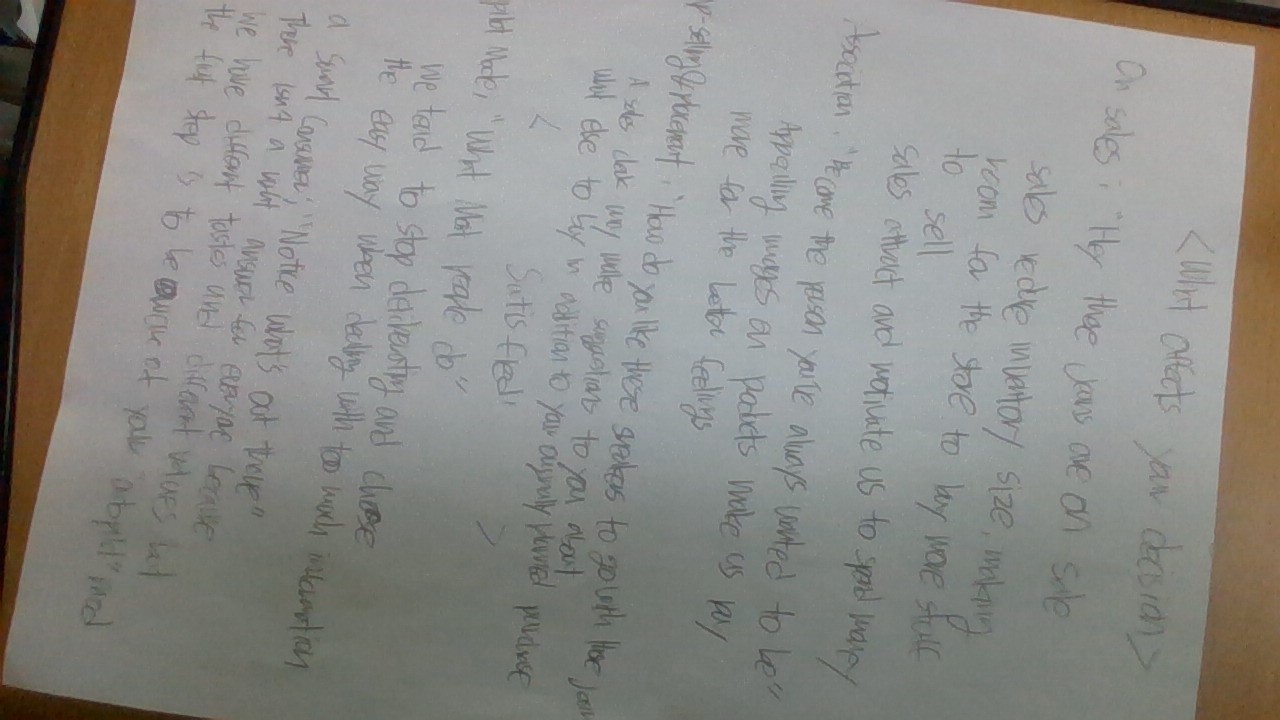 <What affects your decision>
On sales : "Hey those jeans are on sale
sales reduce inventory size, making
room for the store to buy more stuff
to sell
sales attract and motivate us to spend money
Association, "Become the person you're always wanted to be"
Appealing images on products make us pay
more for the better feelings
p-selling & placement, "How do you like these sneakers to go with those jeans
A sales clerk may make suggestions to you about
what else to buy in addition to your originally planned purchase
< Satisfied! >
pilot Mode, "What Most people do"
We tend to stop deliberating and choose
the easy way when dealing with too much information
a Smart Consumer, "Notice what's out there"
There isn't a right answer for everyone because
We have different tastes and different values but
the first step is to be aware of your
autopilot" mode